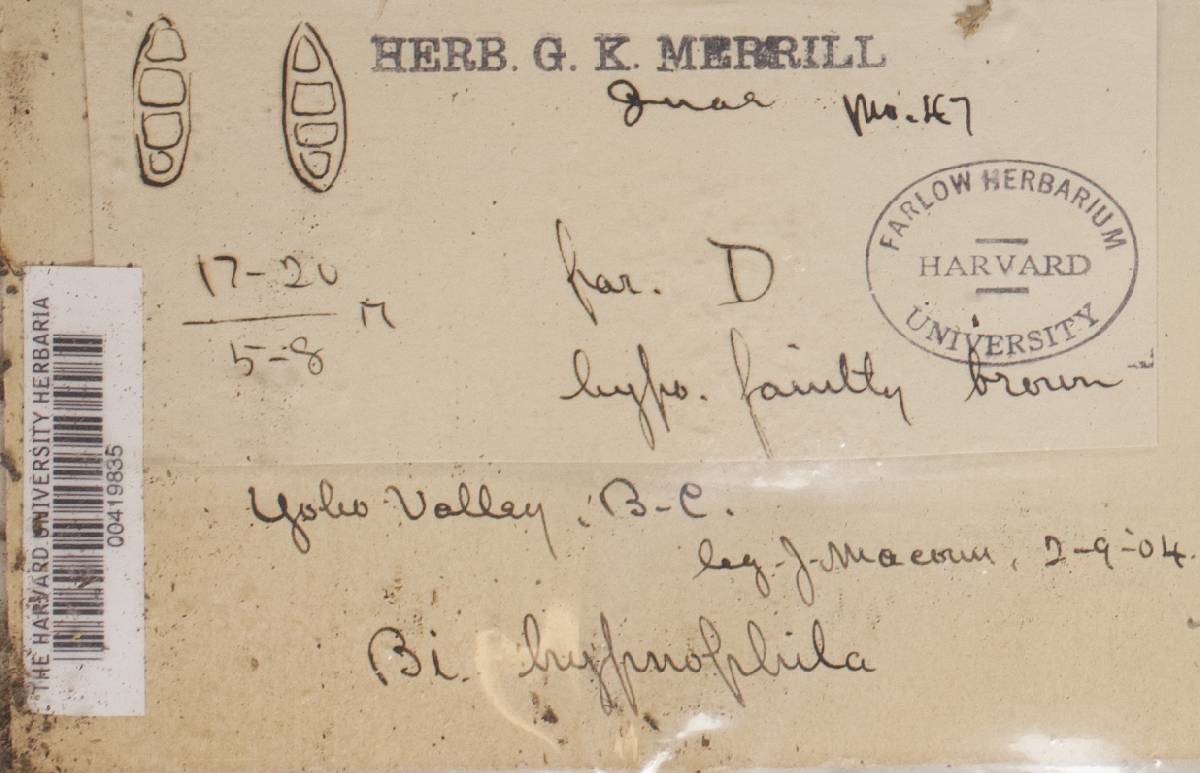 HERB. G. K. MERRILL
No. 47
FARLOW HERBARIUM
HARVARD
UNIVERSITY
17-20
5-8
par. D
hypo. faintly brown
Yoho Valley, B-C.
leg. J. Macoun, 2-9-04.
Bi. hypnophila
THE HARVARD UNIVERSITY HERBARIA
00419835